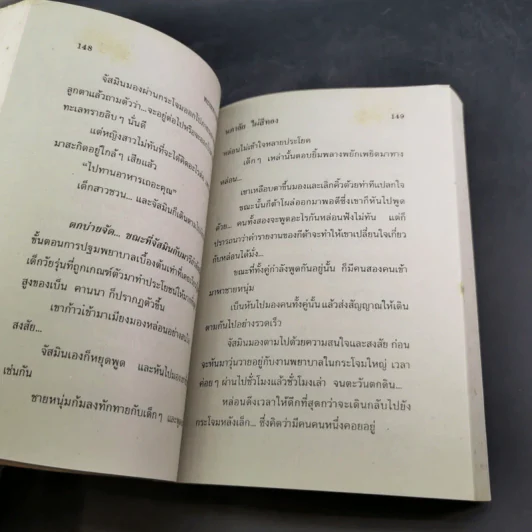 148
จัสมินมองผ่านกระโจมออกไป
ลูกตาแล้วถามตัวว่า...จะอยู่ต่อไปหรือ
ทะเลทรายลิบๆ นั่นดี
แต่หญิงสาวไม่ทันที่จะได้คิดอะไร
มาสะกิดอยู่ใกล้ๆ เสียแล้ว
"ไปทานอาหารเถอะคุณ"
เด็กสาวชวน... และจัสมินก็เดินตาม
ตกบ่ายจัด... ขณะที่จัสมินกับ
ขั้นตอนการปฐมพยาบาลเบื้องต้นเท่าที่
เด็กวัยรุ่นที่ถูกเกณฑ์ตัวมาทำประโยชน์ให้
สูงของเป็น คานนา ก็ปรากฏตัวขึ้น
เขาก้าวเข้ามาเมียงมองหล่อนอย่าง
สงสัย...
จัสมินเองก็หยุดพูด และหันไปมอง
เช่นกัน
ชายหนุ่มก้มลงทักทายกับเด็กๆ และ
นภาลัย ไผ่สีทอง 149
หล่อนไม่เข้าใจหลายประโยค
เด็กๆ เหล่านั้นตอบยิ้มพลางพยักเพยิดมาทาง
หล่อน...
เขาเหลือบตาขึ้นมองและเลิกคิ้วด้วยท่าทีแปลกใจ
ขณะนั้นกีต้าโผล่ออกมาพอดีซึ่งเขาก็หันไปพูด
ด้วย... คนทั้งสองจะพูดอะไรกันหล่อนฟังไม่ทัน แต่ก็
ปรารถนาว่าคำรายงานของกีต้าจะทำให้เขาเปลี่ยนใจเกี่ยว
กับหล่อนได้มั่ง...
ขณะที่ทั้งคู่กำลังพูดกันอยู่นั้น ก็มีคนสองคนเข้า
มาหาชายหนุ่ม
เป็นหันไปมองคนทั้งคู่นั้น แล้วส่งสัญญาณให้เดิน
ตามกันไปอย่างรวดเร็ว
จัสมินมองตามไปด้วยความสนใจและสงสัย ก่อน
จะหันมาวุ่นวายอยู่กับงานพยาบาลในกระโจมใหญ่ เวลา
ค่อยๆ ผ่านไปชั่วโมงแล้วชั่วโมงเล่า จนตะวันตกดิน...
หล่อนดึงเวลาให้ดึกที่สุดกว่าจะเดินกลับไปยัง
กระโจมหลังเล็ก... ซึ่งคิดว่ามีคนคนหนึ่งคอยอยู่